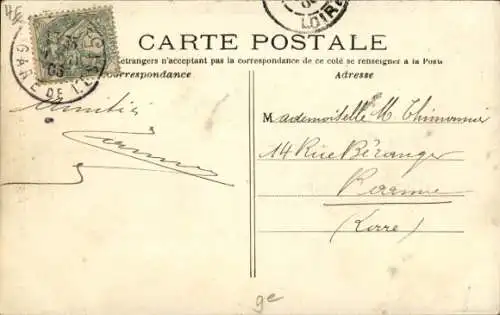 LOIRE
GARE DE L'
CARTE POSTALE
étrangers n'acceptant pas la correspondance de ce côté se renseigner à la Poste
Correspondance
Adresse
Amitiés
Mademoiselle M. Thimonnier
14 Rue Béranger
Roanne
(Loire)